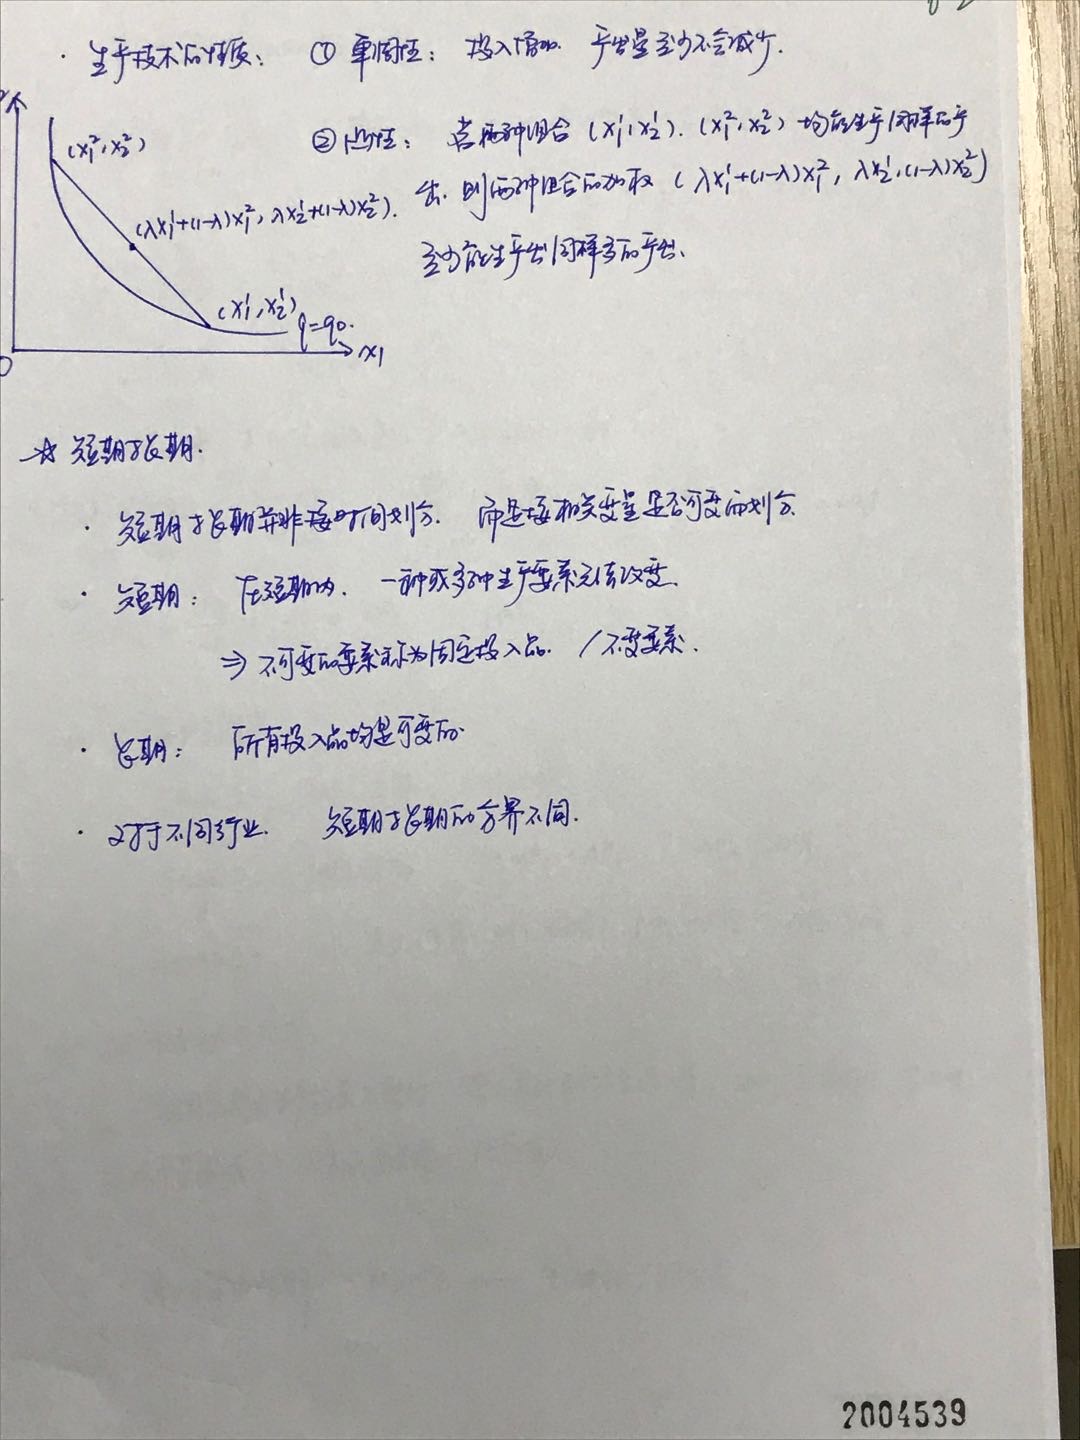 · 生产技术的性质： ① 单调性： 投入增加. 产出量至少不会减少.
② 凸性： 若两种组合 (x₁¹, x₂¹). (x₁², x₂²) 均能生产同样的产
出. 则两种组合的加权 (λx₁¹+(1-λ)x₁², λx₂¹,(1-λ)x₂²)
至少能生产出同样多的产出.
(x₁², x₂²)
(λx₁¹+(1-λ)x₁², λx₂¹+(1-λ)x₂²).
(x₁¹, x₂¹)
q=q₀.
x₁
O
☆ 短期与长期.
· 短期与长期并非按时间划分. 而是按相关变量是否可变而划分.
· 短期： 在短期内. 一种或多种生产要素无法改变.
⇒ 不可变的要素称为固定投入品. / 不变要素.
· 长期： 所有投入品均是可变的.
· 对于不同行业. 短期与长期的分界不同.
2004539